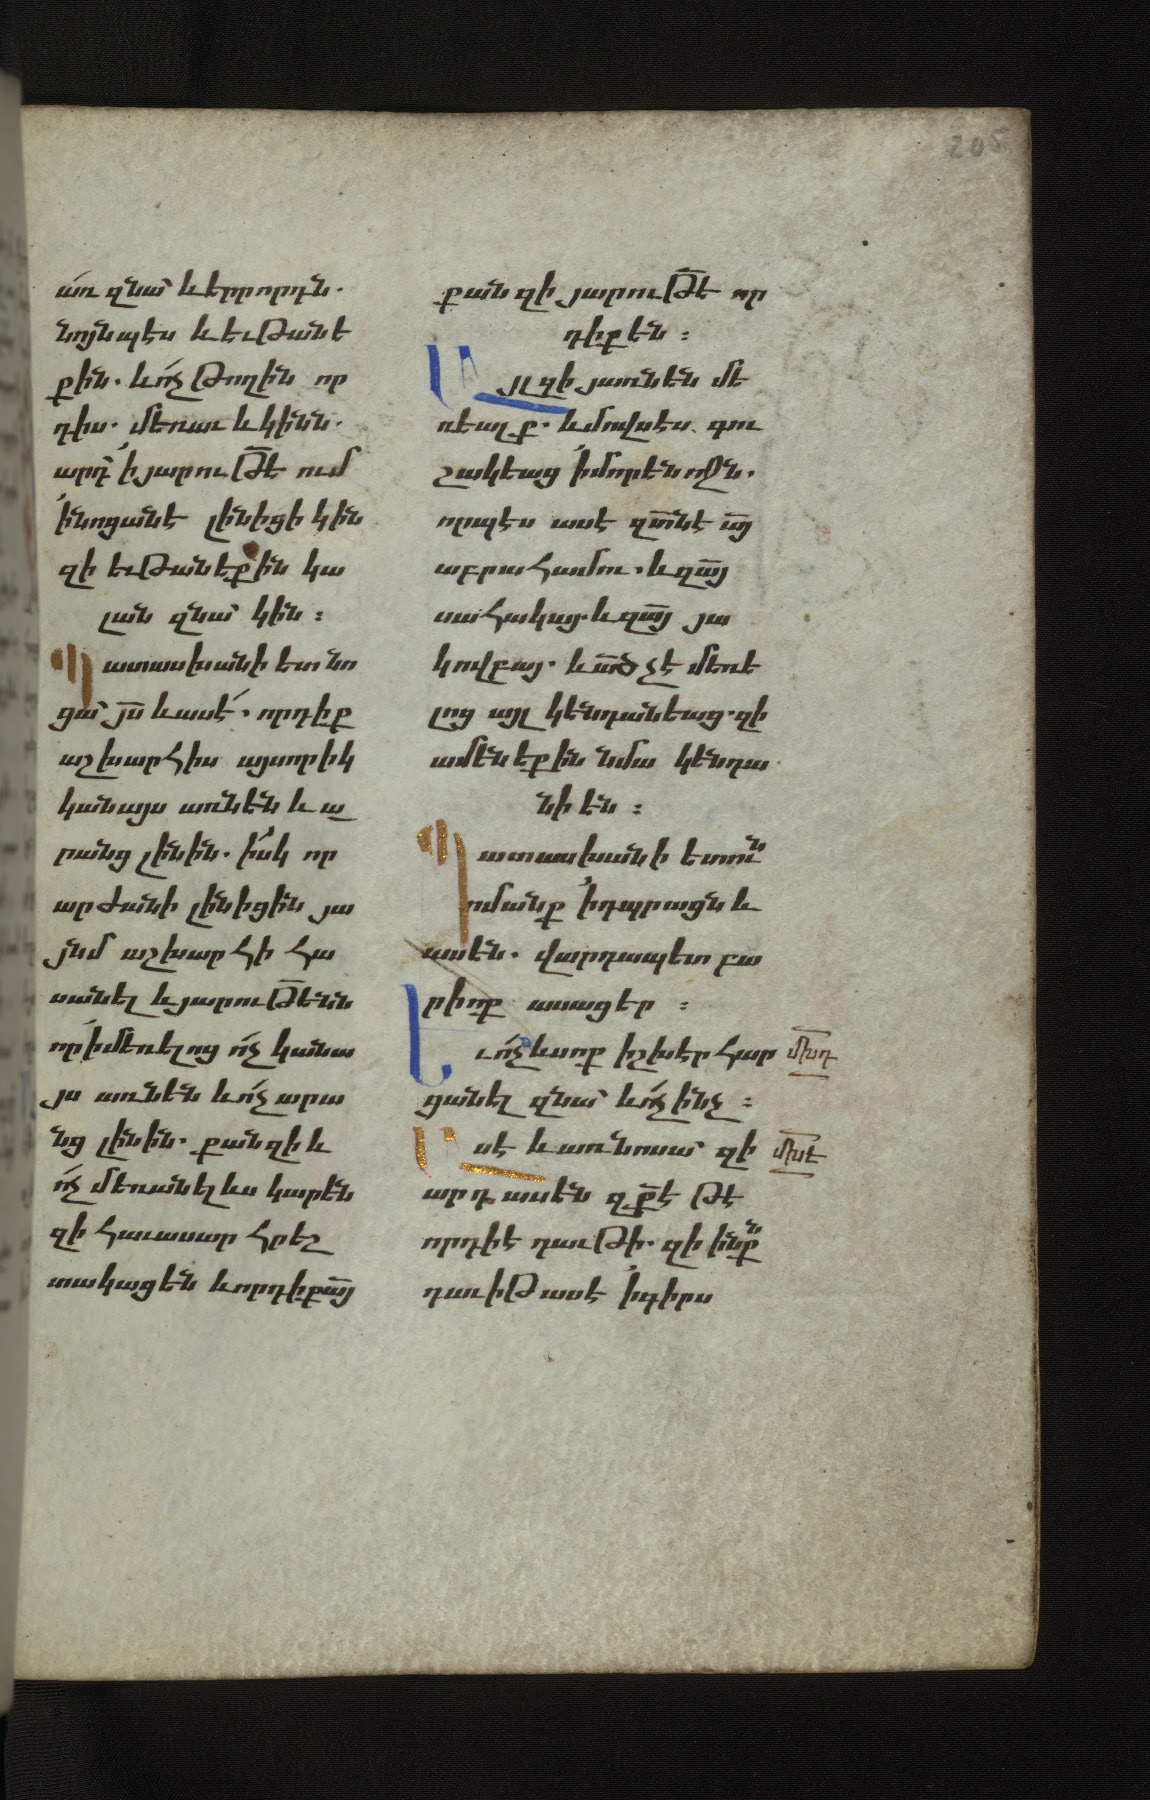 205
առ զնա՝ և երրորդն.
նոյնպէս և եւթանե
քին. և ո՛չ թողին որ
դիս. մեռաւ և կինն.
արդ՝ ի յարութե ում
ի նոցանէ լինիցի կին
զի եւթանեքին կա
լան զնա՝ կին :
Պատասխանի ետ նո
ցա՝ յս և ասէ. որդիք
աշխարհիս այսորիկ
կանայս առնեն և ա
րանց լինին. իսկ որ
արժանի լինիցին յա
յնմ աշխարհի հա
սանել և յարութենն
որ ի մեռելոց ո՛չ կանա
յս առնեն և ո՛չ արա
նց լինին. քանզի և
ո՛չ մեռանել ևս կարեն
զի հաւասար հրեշ
տակաց են և որդիք այ
քանզի յարութե որ
դիք են :
Այլ զի յառնեն մե
ռեալք. և մովսէս գու
շակեաց ի մորենոջն.
որպէս ասէ զտնէ այ
աբրահամու. և զայ
սահակայ. և զայ յա
կովբայ. և ած չէ մեռե
լոց այլ կենդանեաց. զի
ամենեքին նմա կենդա
նի են :
Պատասխանի ետուն
ոմանք ի դպրացն և
ասեն. վարդապետ բա
րիոք ասացեր :
Եւ ո՛չ ևս ոք իշխէր հար
ցանել զնա՝ և ո՛չ ինչ :
Ասէ և առ նոսա՝ զի
արդ ասեն զքէ թէ
որդի է դաւթի. զի ինքն
դաւիթ ասէ ի գիրս
մխդ
մխե